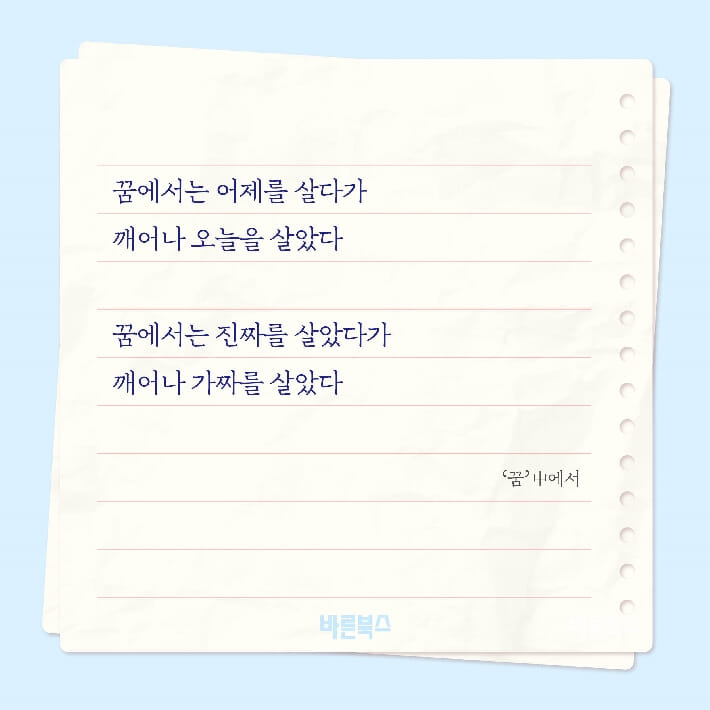 꿈에서는 어제를 살다가
깨어나 오늘을 살았다
꿈에서는 진짜를 살았다가
깨어나 가짜를 살았다
‘꿈’ 中에서
바른북스